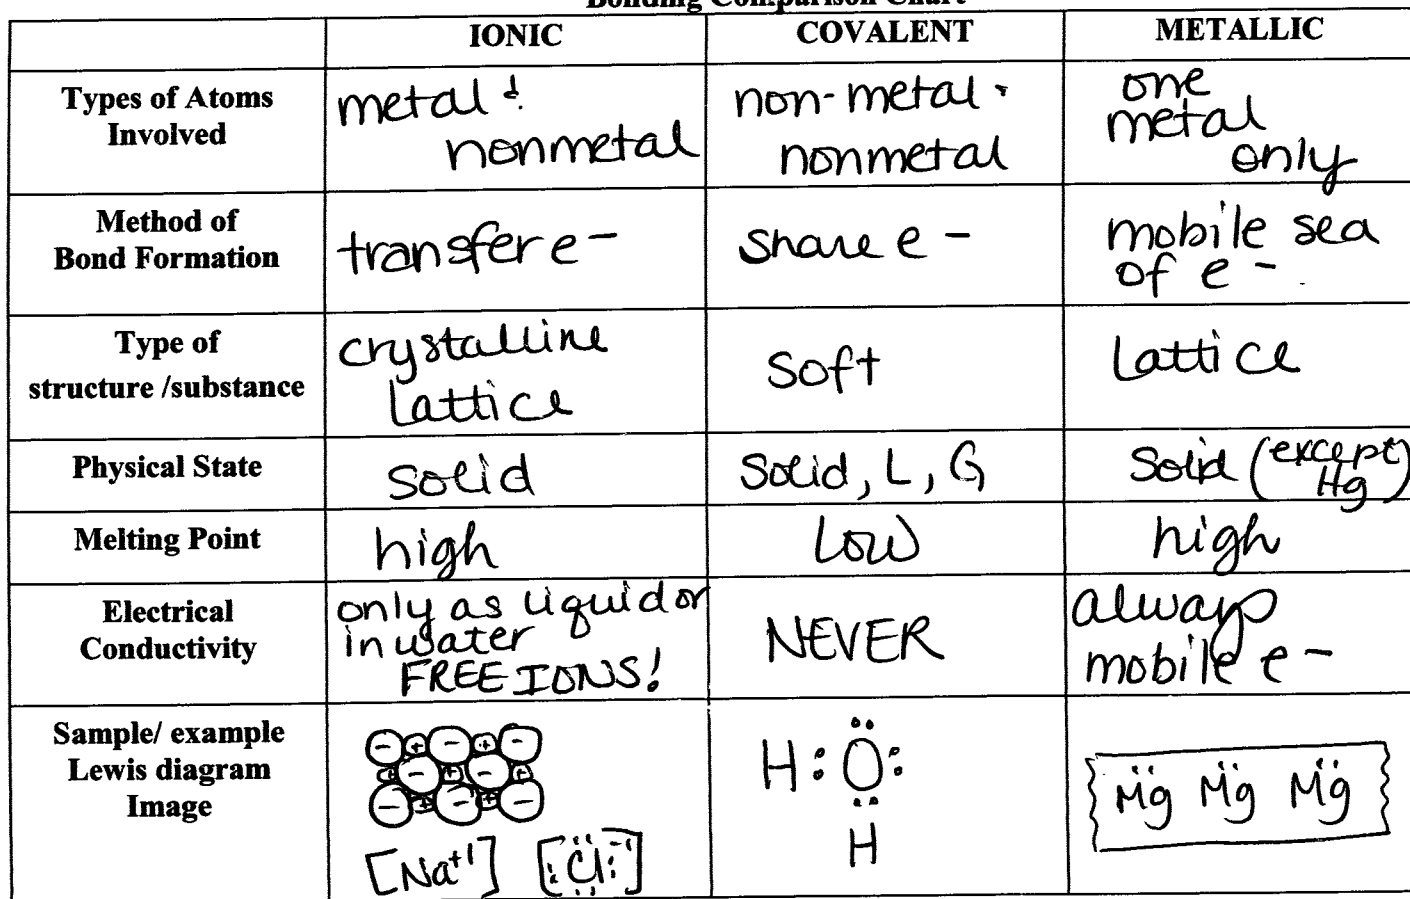 Bonding Comparison Chart
IONIC COVALENT METALLIC
Types of Atoms
Involved
metal &
nonmetal
non-metal ·
nonmetal
one
metal
only
Method of
Bond Formation
transfer e-
Share e-
mobile sea
of e-
Type of
structure /substance
crystalline
Lattice
Soft
Lattice
Physical State
Solid
Solid, L, G
Solid (except
Hg)
Melting Point
high
Low
high
Electrical
Conductivity
only as liquid or
in water
FREE IONS!
NEVER
always
mobile e-
Sample/ example
Lewis diagram
Image
- + - + -
+ - + - +
- + - + -
[Na+1] [:Cl:-1]
H:O:
H
Mg Mg Mg